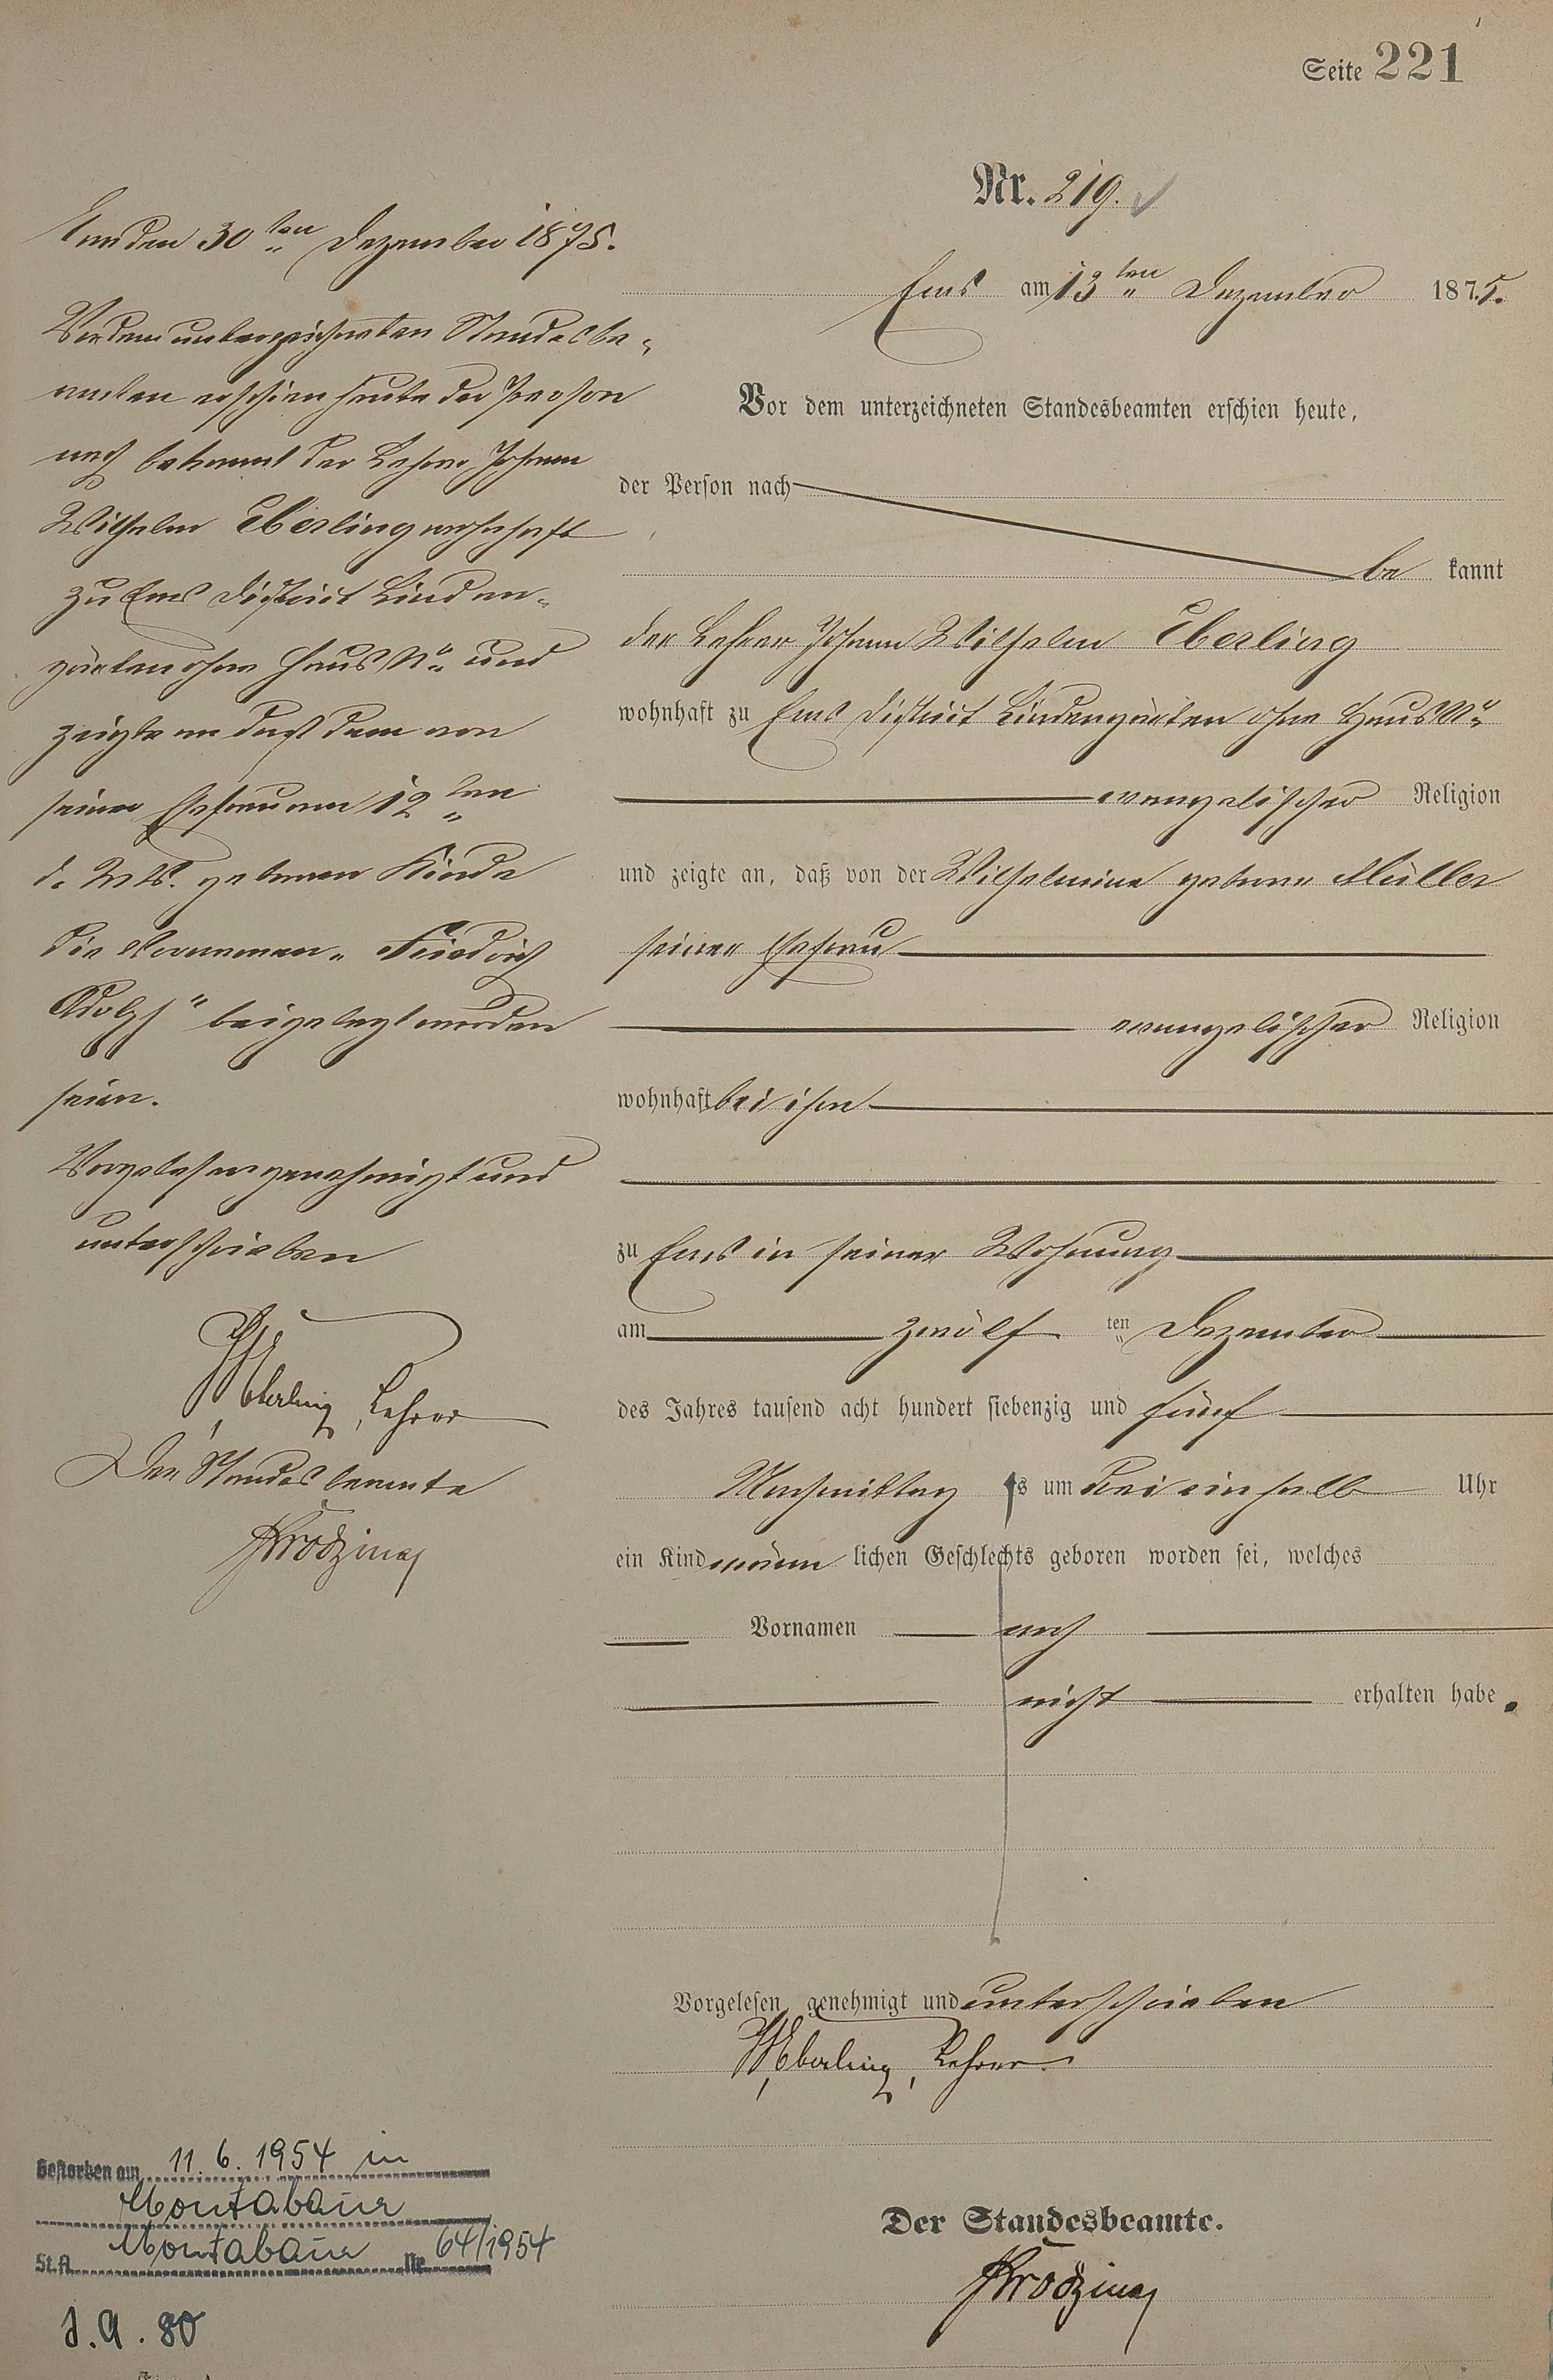 Seite 221
Nr. 219.
Ems am 13ten Dezember 1875.
Vor dem unterzeichneten Standesbeamten erschien heute,
der Person nach
be kannt
der Lehrer Johann Wilhelm Eberling
wohnhaft zu Ems District Lindengärten ohne Haus No
evangelischer Religion
und zeigte an, daß von der Wilhelmine geborne Müller
seiner Ehefrau
evangelischer Religion
wohnhaft bei ihm
zu Ems in seiner Wohnung
am zwölf ten Dezember
des Jahres tausend acht hundert siebenzig und fünf
Nachmittag s um drei einhalb Uhr
ein Kind männ lichen Geschlechts geboren worden sei, welches
Vornamen noch
nicht erhalten habe.
Vorgelesen, genehmigt und unterschrieben
JWEberling, Lehrer.
Der Standesbeamte.
Ems den 30ten Dezember 1875.
Vor dem unterzeichneten Standesbe-
amten erschien heute der Person
nach bekannt der Lehrer Johann
Wilhelm Eberling wohnhaft
zu Ems District Linden-
gärten ohne Haus No und
zeigte an daß dem von
seiner Ehefrau am 12ten
d. Mts. gebornen Kinde
die Vornamen „Friedrich
Adolph" beigelegt worden
seien.
Vorgelesen genehmigt und
unterschrieben
JWEberling, Lehrer
Der Standesbeamte
Gestorben am 11.6.1954 in
Montabaur
St.A. Montabaur Nr. 64/1954